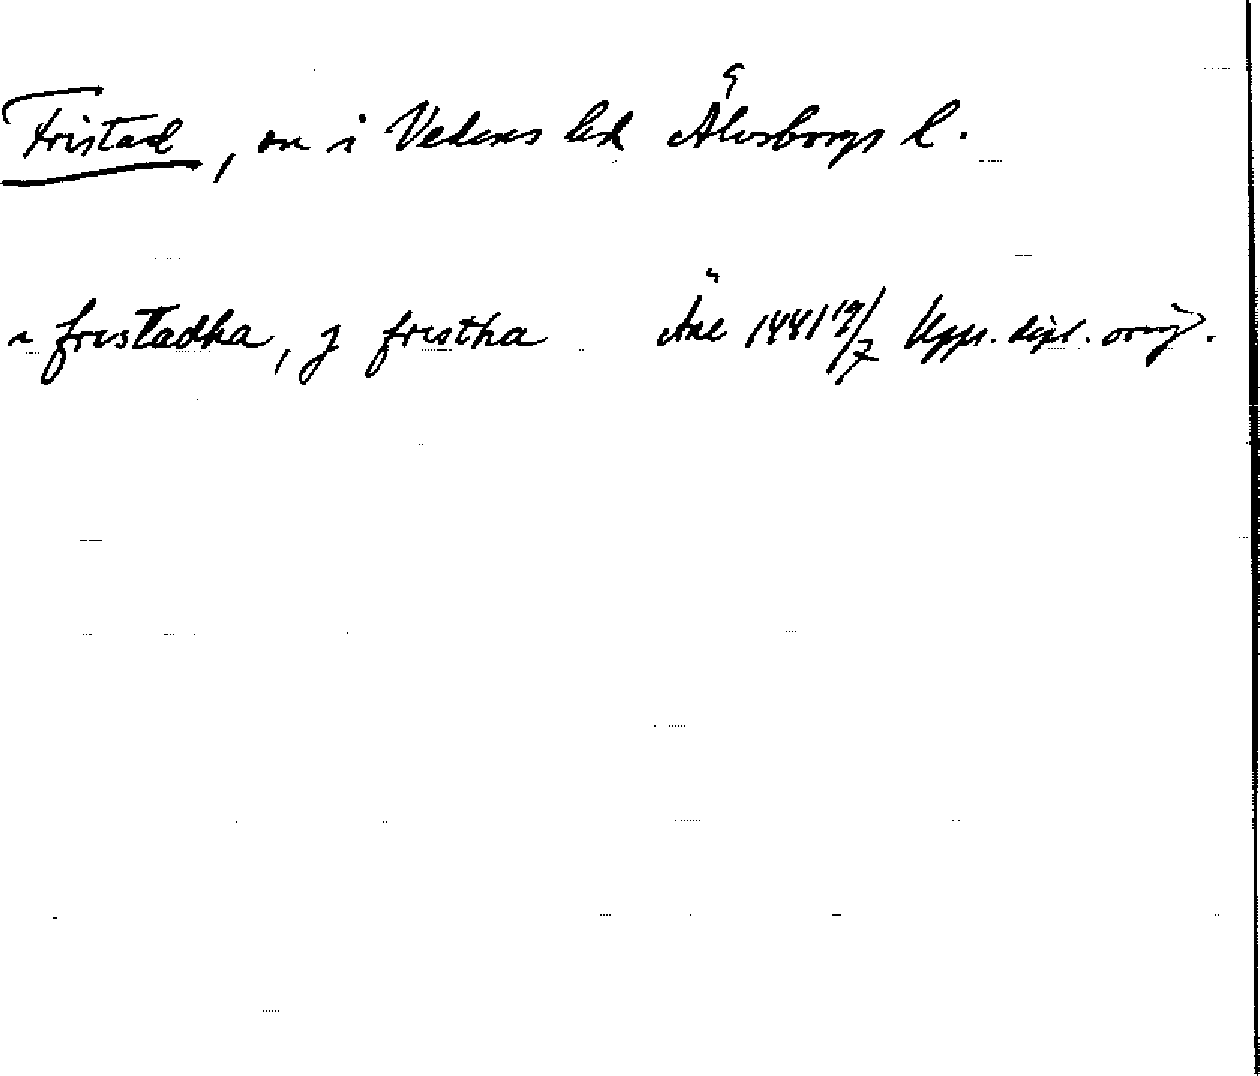 Fristad, sn i Vedens hd Älvsborgs l.
i fristadha, j fristha Äne 1441 19/7 Upps. dipl. orig.